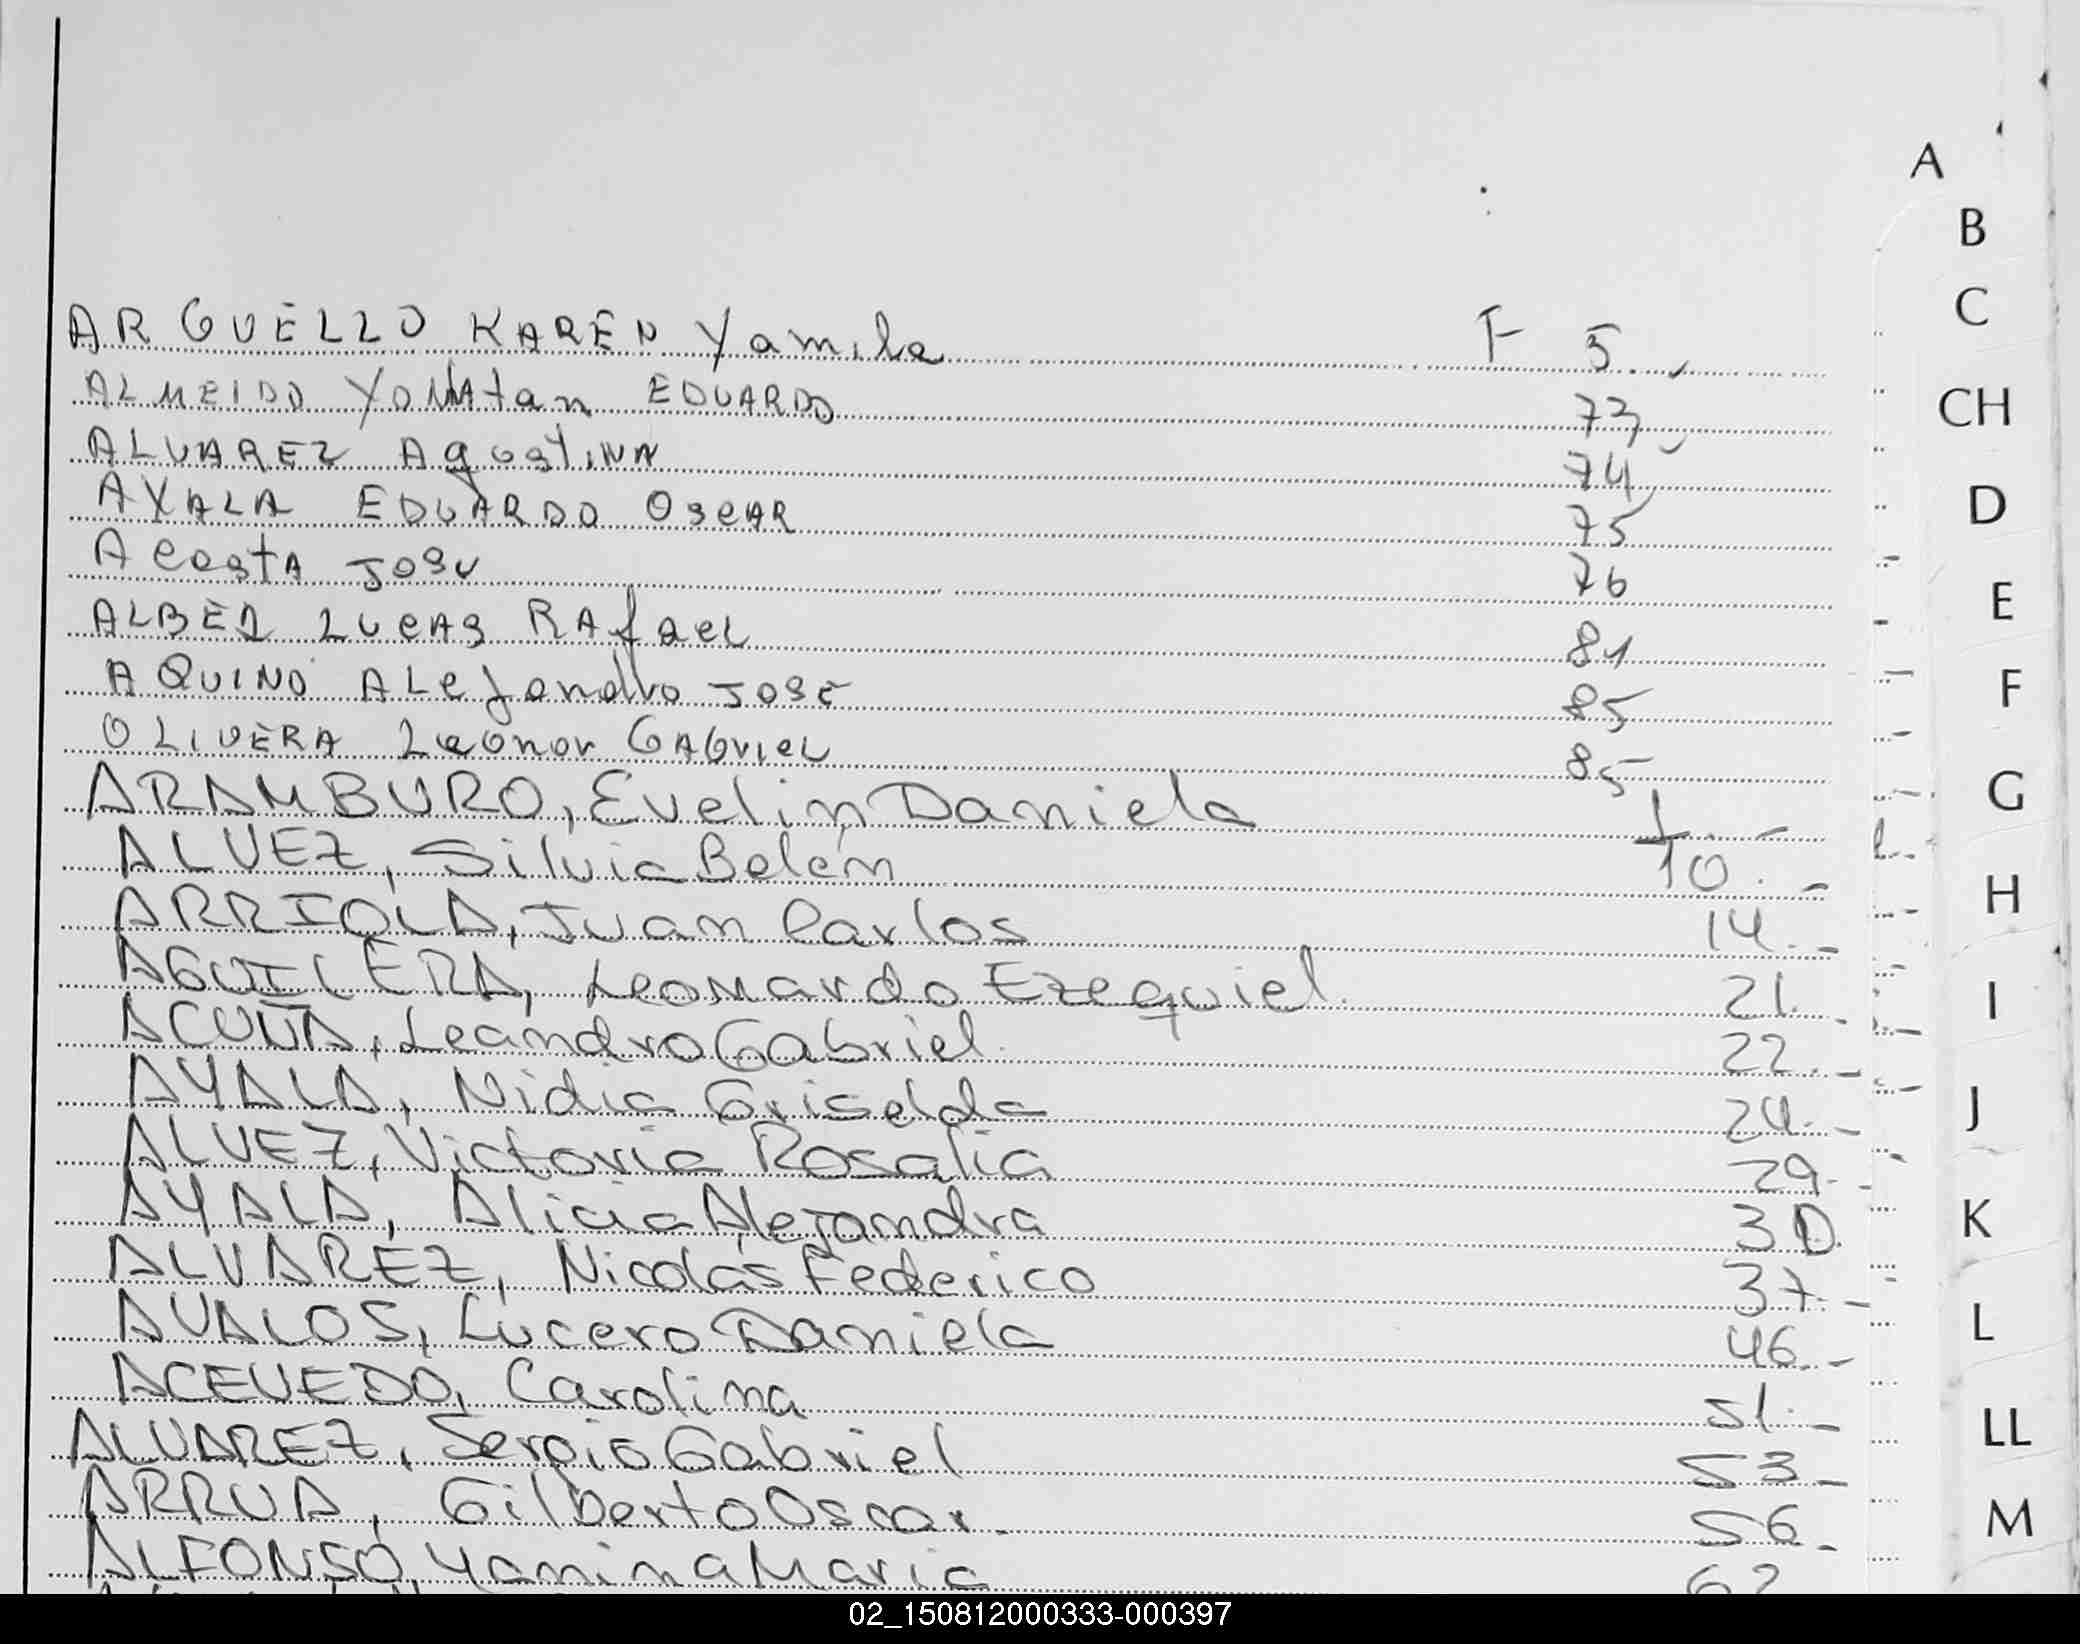 A
B
C
ARGUELLO KAREN Yamila F 5.
CH
ALMEIDO YONAtan EDUARDO 73
ALVAREZ AgostiNA 74
D
AYALA EDUARDO OscAR 75
AcostA JOSU 76
E
ALBEZ LUCAS RAfael 81
F
AQUINO ALejandro JOSE 85
OLIVERA Leonor GAbriel 85
G
ARAMBURO, Evelin Daniela 1.-
ALVEZ, Silvia Belén 10.-
H
ARRIOLA, Juan Carlos 14.-
AGUILERA, Leonardo Ezequiel. 21.-
I
ACUÑA, Leandro Gabriel. 22.-
AYALA, Nidia Griselda 24.-
J
ALVEZ, Victoria Rosalia 29.-
AYALA, Alicia Alejandra 30
K
ALVAREZ, Nicolás Federico 37.-
AVALOS, Lucero Daniela 46.-
L
ACEVEDO, Carolina 51.-
ALVAREZ, Sergio Gabriel 53.-
LL
ARRUA, Gilberto Oscar. 56.-
M
ALFONSO, Yanina Maria 62
02_150812000333-000397